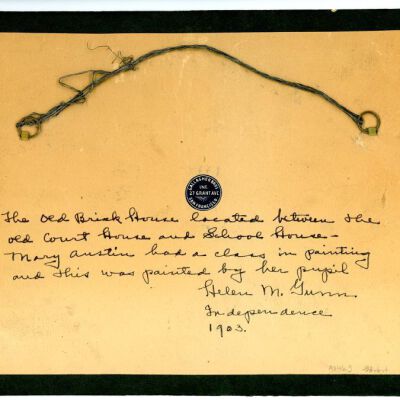 GALLAGHER BROS
INC
27 GRANT AVE
SAN FRANCISCO
The Old Brick House located between the
old Court House and School House -
Mary Austin had a class in painting
and this was painted by her pupil
Helen M. Gunn.
Independence
1903.